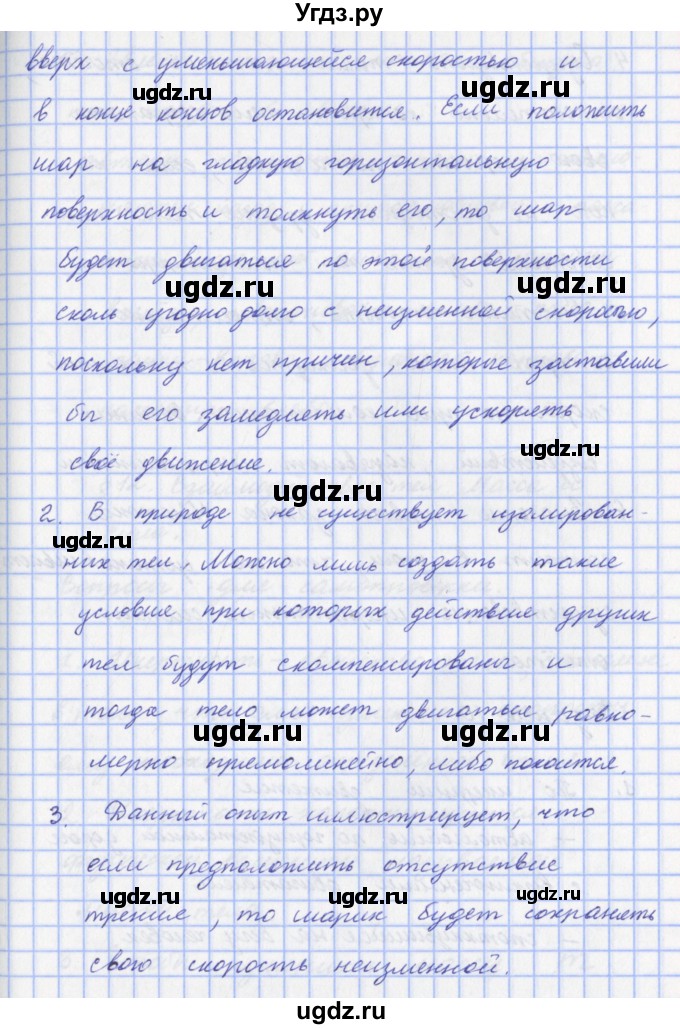 Угдз.ру
вверх с уменьшающейся скоростью и
ugdz.ru ugdz.ru
в конце концов остановится. Если положить
шар на гладкую горизонтальную
поверхность и толкнуть его, то шар
будет двигаться по этой поверхности
ugdz.ru ugdz.ru
сколь угодно долго с неизменной скоростью,
поскольку нет причин, которые заставили
бы его замедлять или ускорять
своё движение.
ugdz.ru
ugdz.ru
2. В природе не существует изолирован-
ugdz.ru
них тел. Можно лишь создать такие
условия при которых действия других
тел будут скомпенсированы и
тогда тело может двигаться равно-
ugdz.ru ugdz.ru
мерно прямолинейно, либо покоится.
3. Данный опыт иллюстрирует, что
если предположить отсутствие
ugdz.ru ugdz.ru
трения, то шарик будет сохранять
свою скорость неизменной.
ugdz.ru